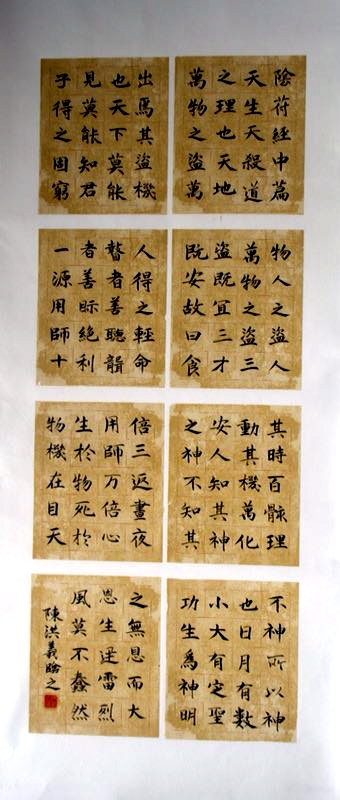 陰符經中篇
天生天殺道
之理也天地
萬物之盜萬
物人之盜人
萬物之盜三
盜既宜三才
既安故曰食
其時百骸理
動其機萬化
安人知其神
之神不知其
不神所以神
也日月有數
小大有定聖
功生爲神明
出焉其盜機
也天下莫能
見莫能知君
子得之固窮
人得之輕命
瞽者善聽聾
者善眎絕利
一源用師十
倍三返晝夜
用師万倍心
生於物死於
物機在目天
之無恩而大
恩生迅雷烈
風莫不蠢然
陳洪義臨之